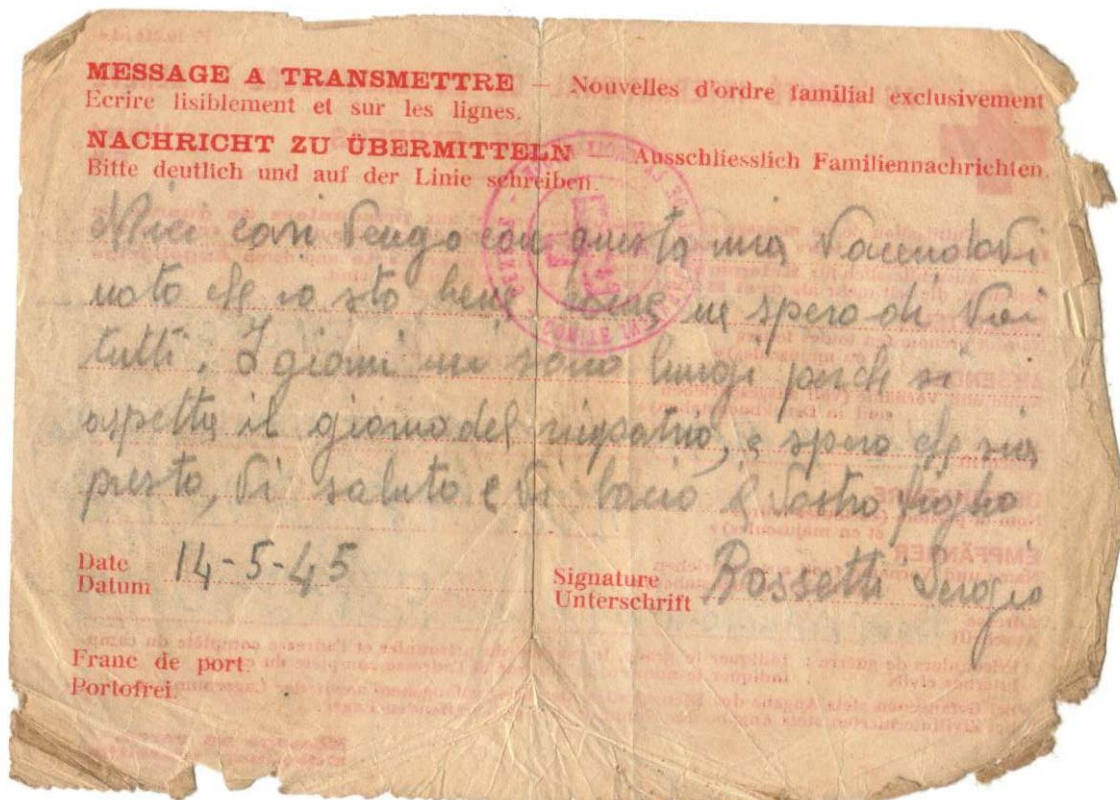 MESSAGE A TRANSMETTRE — Nouvelles d'ordre familial exclusivement
Ecrire lisiblement et sur les lignes.
NACHRICHT ZU ÜBERMITTELN Ausschliesslich Familiennachrichten.
Bitte deutlich und auf der Linie schreiben.
Miei cari Vengo con questa mia
noto che io sto bene spero di Voi
tutti. I giorni mi sono lungi perche si
aspetta il giorno del rimpatrio, e spero che sia
presto, Vi saluto e Vi bacio Vostro figlio
Date
Datum 14-5-45
Signature
Unterschrift Rossetti Sergio
Franc de port.
Portofrei.